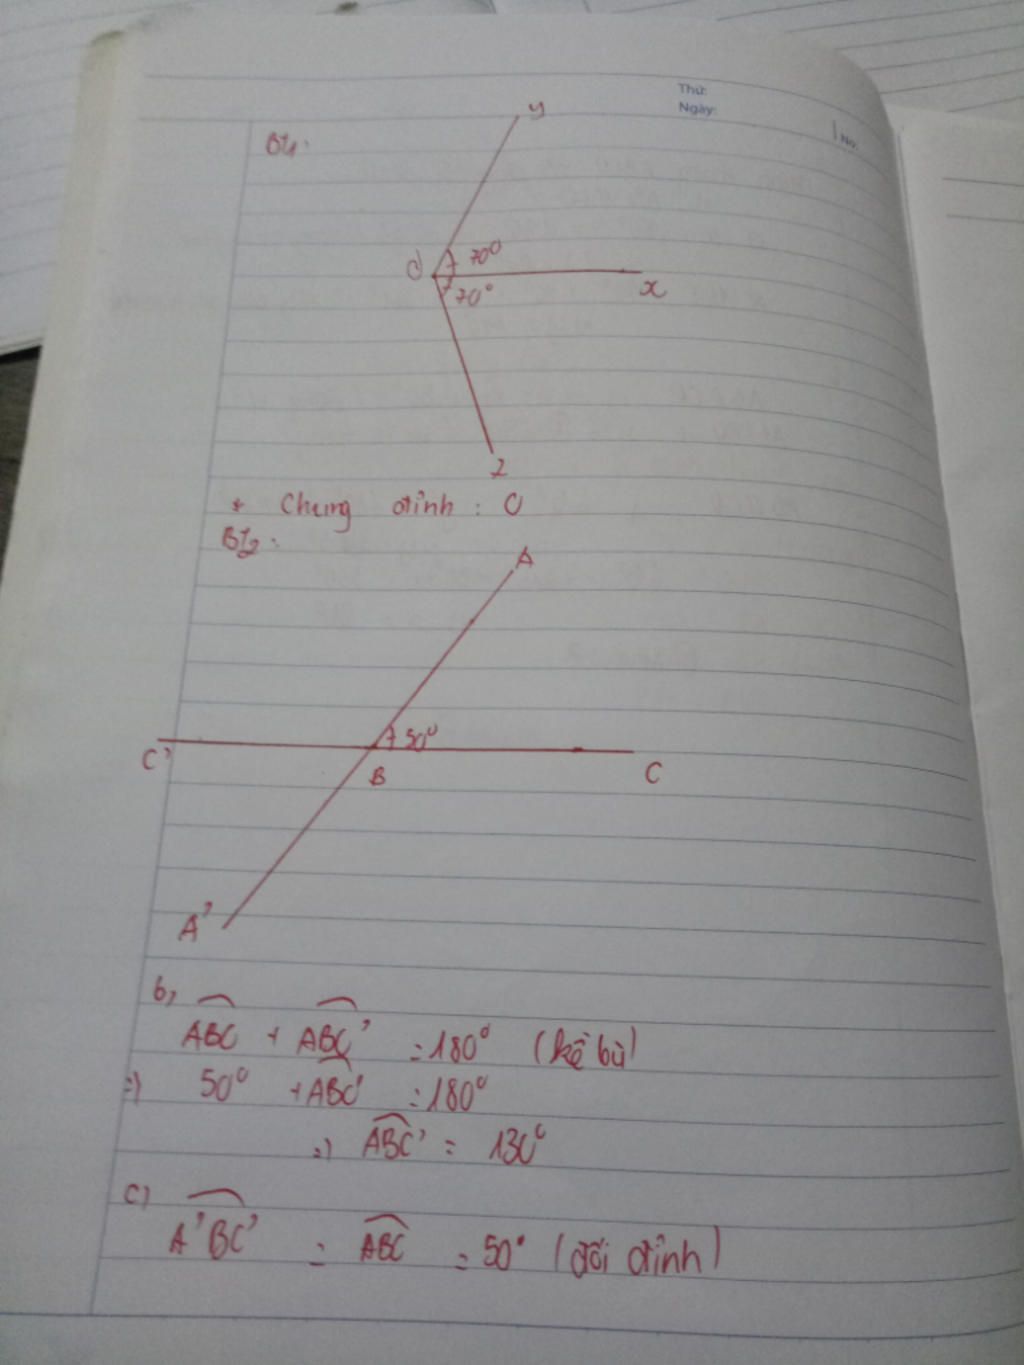 Thứ:
Ngày:
No.
Bt1.
y
O 70°
70° x
z
* Chung đỉnh : O
Bt2.
A
50°
C' B C
A'
b,
ABC + ABC' = 180° (kề bù)
=) 50° + ABC' = 180°
=) ABC' = 130°
c)
A'BC' = ABC = 50° (đối đỉnh)